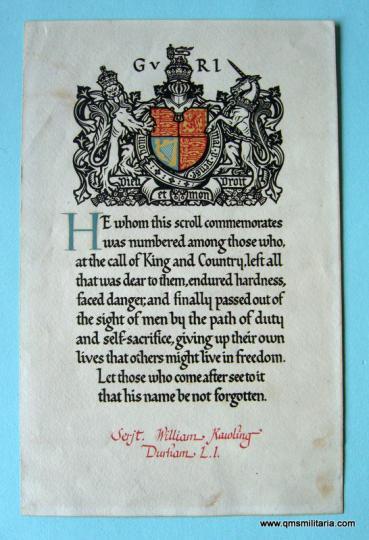 G v R I
Honi soit qui mal y pense
Dieu et mon Droit
HE whom this scroll commemorates
was numbered among those who,
at the call of King and Country, left all
that was dear to them, endured hardness,
faced danger, and finally passed out of
the sight of men by the path of duty
and self-sacrifice, giving up their own
lives that others might live in freedom.
Let those who come after see to it
that his name be not forgotten.
Serjt. William Rawling
Durham L.I.
www.qmsmilitaria.com